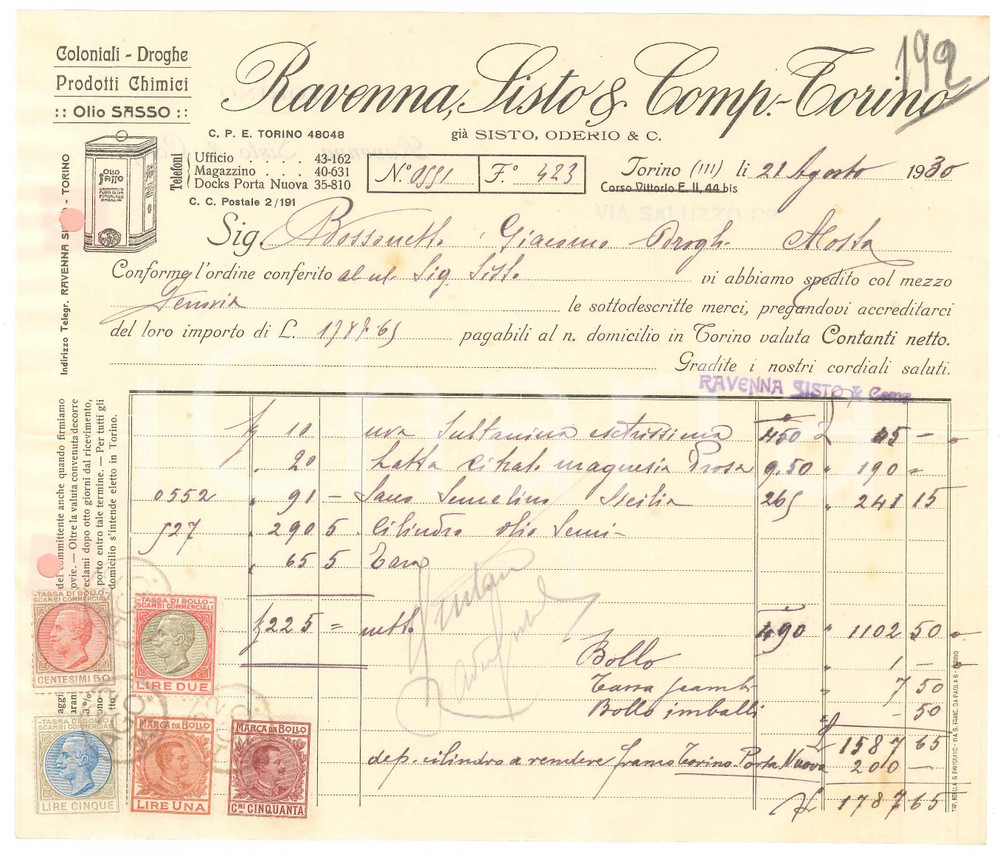 Coloniali - Droghe
Prodotti Chimici
:: Olio SASSO ::
Ravenna, Sisto & Comp.-Torino
192
già SISTO, ODERIO & C.
C. P. E. TORINO 48048
Telefoni
Ufficio - 43-162
Magazzino - 40-631
Docks Porta Nuova 35-810
C. C. Postale 2/191
N.° 0551 F.° 423
Torino (III) li 21 Agosto 1930
Corso Vittorio E. II, 44 bis
VIA SALUZZO
OLIO SASSO
Indirizzo Telegr. RAVENNA SISTO - TORINO
Sig. Giacomo Drogh. Aosta
Conforme l'ordine conferito al ns. Sig. Sisto vi abbiamo spedito col mezzo
Ferrovia le sottodescritte merci, pregandovi accreditarci
del loro importo di L. 1787.65 pagabili al n. domicilio in Torino valuta Contanti netto.
Gradite i nostri cordiali saluti.
RAVENNA SISTO & Comp.
10 uva Sultanina extrissima 450 45 -
" 20 Latta Citrato magnesia Prosa 9.50 " 190 "
0552 " 91 - Sano Semelino Sicilia 265 " 241 15
527 " 290 5 Cilindro olio Semi -
" 65 5 Tara
225 = netto 490 " 1102 50
Bollo " 1 -
Tassa scambi " 7 50
Bollo imballi " - 50
1587 65
dep. cilindro a rendere franco Torino Porta Nuova 200 -
1787 65
del committente anche quando firmiamo
ovie. — Oltre la valuta convenuta decorre
reclami dopo otto giorni dal ricevimento,
porto entro tale termine. — Per tutti gli
domicilio s'intende eletto in Torino.
TASSA DI BOLLO
SCAMBI COMMERCIALI
CENTESIMI 50
TASSA DI BOLLO
SCAMBI COMMERCIALI
LIRE DUE
TASSA DI BOLLO
SCAMBI COMMERCIALI
LIRE CINQUE
MARCA DA BOLLO
LIRE UNA
MARCA DA BOLLO
C.MI CINQUANTA